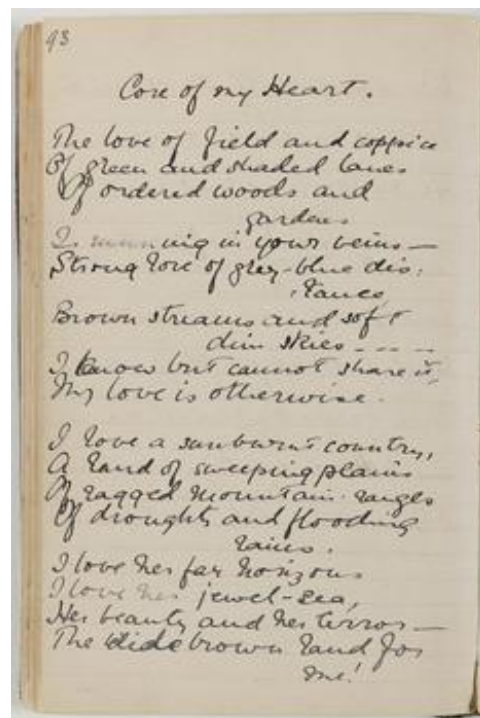 93
Core of my Heart.
The love of field and coppice
Of green and shaded lanes
Of ordered woods and
gardens
Is running in your veins —
Strong love of grey-blue dis:
:tance,
Brown streams and soft
dim skies - - - -
I know but cannot share it,
My love is otherwise.
I love a sunburnt country,
A land of sweeping plains
Of ragged mountain ranges
Of droughts and flooding
rains.
I love her far horizons
I love her jewel-sea,
Her beauty and her terror —
The wide brown land for
me!